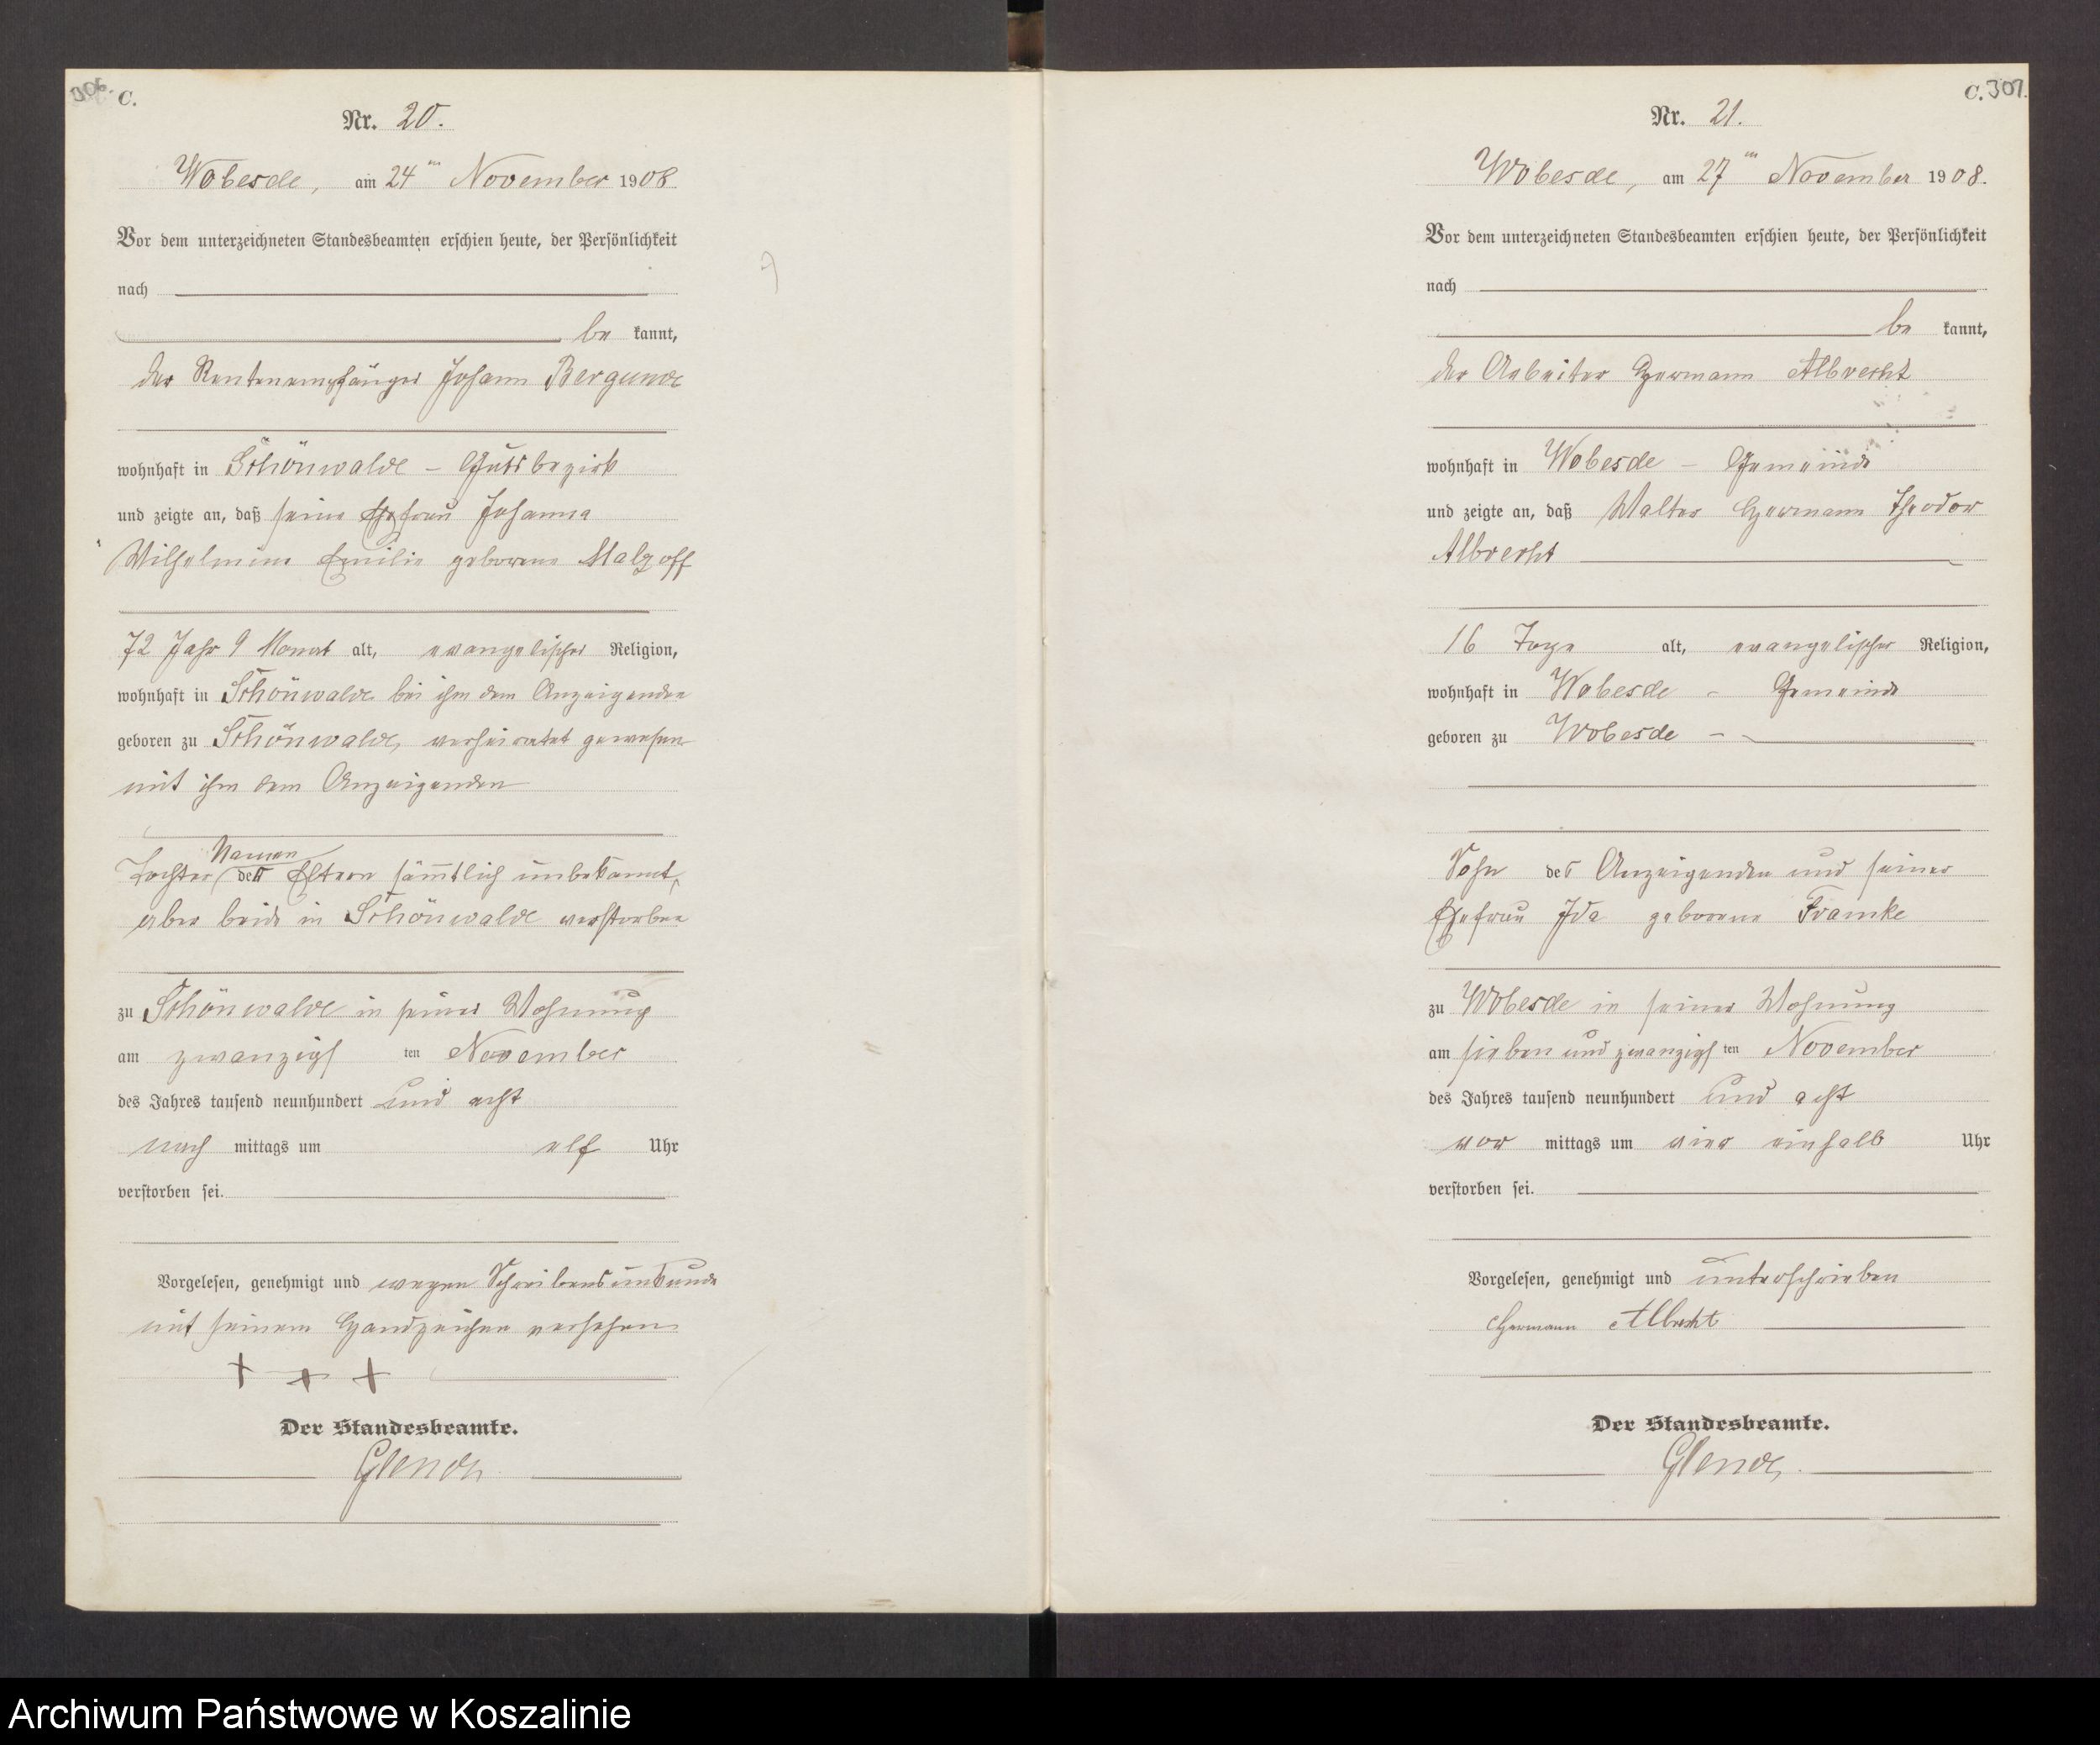 306.
C.
Nr. 20.
Wobesde, am 24ten November 1908
Vor dem unterzeichneten Standesbeamten erschien heute, der Persönlichkeit
nach
be kannt,
der Rentenempfänger Johann Bergunde
wohnhaft in Schönwalde - Gutsbezirk
und zeigte an, daß seine Ehefrau Johanna
Wilhelmine Emilie geborene Malzoff
72 Jahr 9 Monat alt, evangelischer Religion,
wohnhaft in Schönwalde bei ihm dem Anzeigenden
geboren zu Schönwalde, verheiratet gewesen
mit ihm dem Anzeigenden
Namen
Tochter der Eltern sämtlich unbekannt,
aber beide in Schönwalde verstorben
zu Schönwalde in seiner Wohnung
am zwanzigs ten November
des Jahres tausend neunhundert und acht
nach mittags um elf Uhr
verstorben sei.
Vorgelesen, genehmigt und wegen Schreibensunkunde
mit seinem Handzeichen versehen
+ + +
Der Standesbeamte.
C. 307.
Nr. 21.
Wobesde, am 27ten November 1908.
Vor dem unterzeichneten Standesbeamten erschien heute, der Persönlichkeit
nach
be kannt,
der Arbeiter Hermann Albrecht
wohnhaft in Wobesde - Gemeinde
und zeigte an, daß Walter Hermann Theodor
Albrecht
16 Tage alt, evangelischer Religion,
wohnhaft in Wobesde - Gemeinde
geboren zu Wobesde -
Sohn des Anzeigenden und seiner
Ehefrau Ida geborene Framke
zu Wobesde in seiner Wohnung
am sieben und zwanzigs ten November
des Jahres tausend neunhundert und acht
vor mittags um vier einhalb Uhr
verstorben sei.
Vorgelesen, genehmigt und unterschrieben
Hermann Albrecht
Der Standesbeamte.
Archiwum Państwowe w Koszalinie